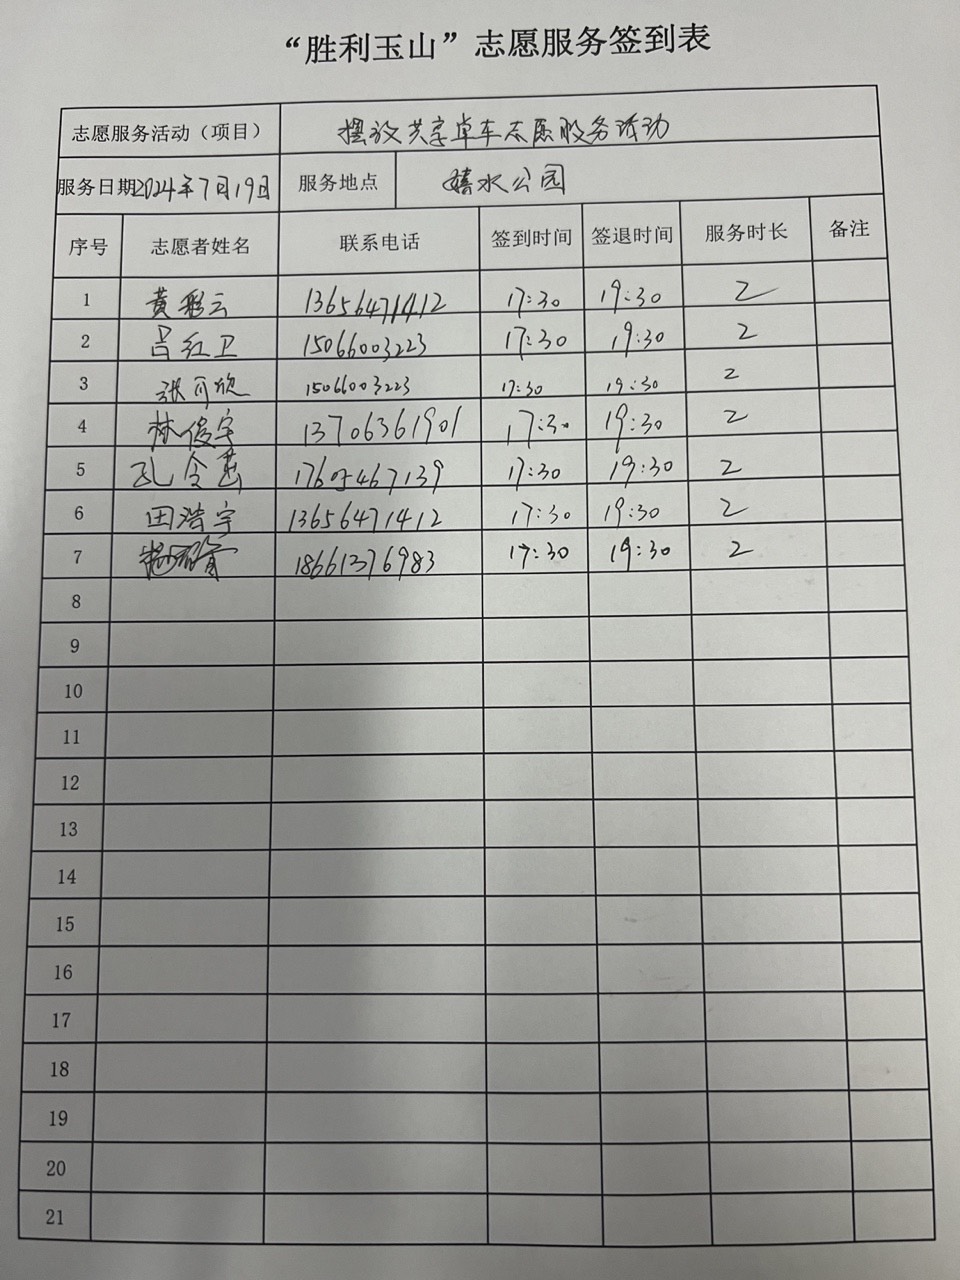 “胜利玉山”志愿服务签到表
志愿服务活动（项目） 摆放共享单车志愿服务活动
服务日期2024年7月19日 服务地点 嬉水公园
序号 志愿者姓名 联系电话 签到时间 签退时间 服务时长 备注
1 黄彩云 13656471412 17:30 19:30 2
2 吕红卫 15066003223 17:30 19:30 2
3 张可欣 15066003223 17:30 19:30 2
4 林俊宇 13706361901 17:30 19:30 2
5 孔令 17:30 19:30 2
6 田浩宇 13656471412 17:30 19:30 2
7 18661376983 17:30 19:30 2
8
9
10
11
12
13
14
15
16
17
18
19
20
21